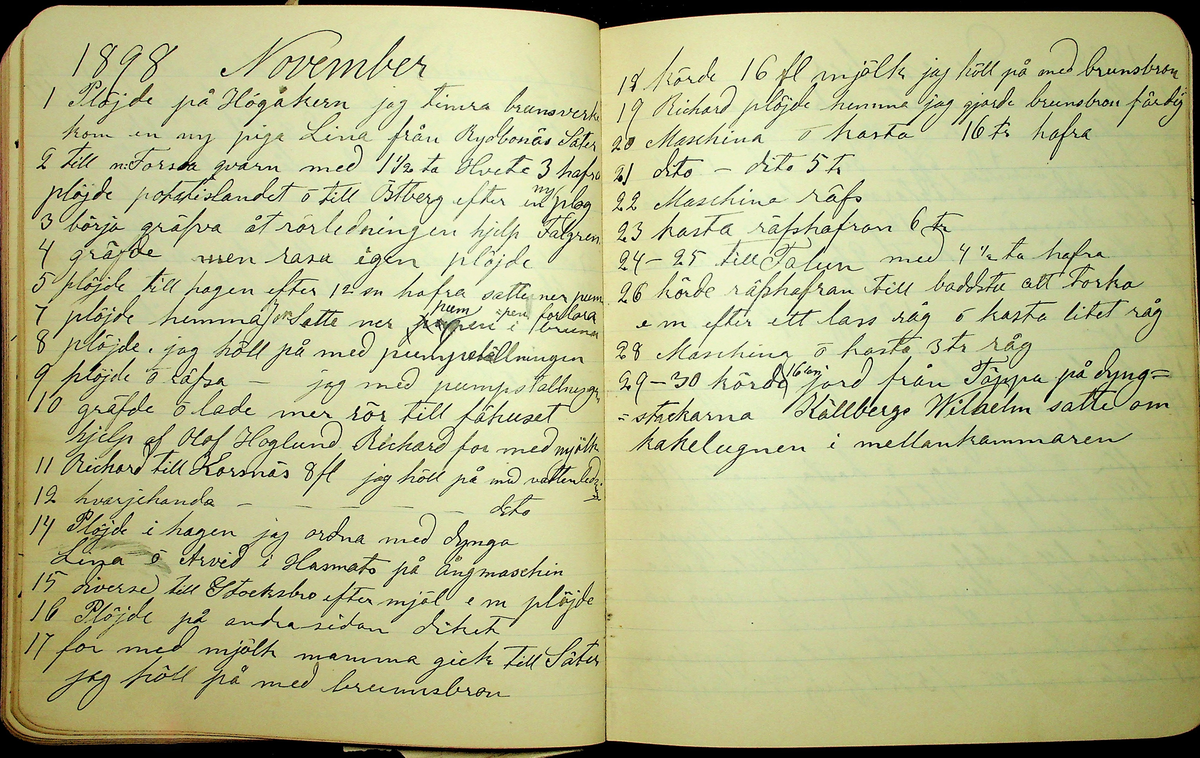 1898 November
1 Plöjde på Högåkern jag timra brunsverke
kom en ny piga Lina från Rydbonäs Säter
2 till n. Forssa qvarn med 1½ ta Hvete 3 hafra
plöjde potatislandet o till Ostberg efter en ny plog
3 börja gräfva åt rörledningen hjelp Falgren
4 gräfde men rasa igen plöjde
5 plöjde till hagen efter 12 sn hafra satte ner pum
7 plöjde hemma Satte ner pumpen i bruna
8 plöjde, jag höll på med pumpställningen
9 plöjde o räfsa – jag med pumpstallnigen
10 gräfde o lade mer rör till fähuset
hjelp af Olof Hoglund Richard for med mjölk
11 Richard till Korsnäs 8 fl jag höll på md vattenled
12 hvarjehanda – – – – – dito
14 Plöjde i hagen jag ordna med dynga
Lina o Arvid i Hasmats på ångmaschin
15 diverse till Stocksbro efter mjöl e m plöjde
16 Plöjde på andra sidan diket
17 for med mjölk mamma gick till Säter
jag höll på med brunnsbron
18 körde 16 fl mjölk jag höll på med brunsbron
19 Richard plöjde hemma jag gjorde brunsbron färdig
20 Maschina o kasta 16 tr hafra
21 dito – dito 5 tr
22 Maschina räfs
23 kasta räfshafran 6 tr
24–25 till Falun med 4½ ta hafra
26 körde räfshafran till baddstu att torka
e m efter ett lass råg o kasta litet råg
28 Maschina o kasta 3 tr råg
29–30 körde jord från Täppa på dyng=
=stackarna Källbergs Wilhelm satte om
kakelugnen i mellankammaren